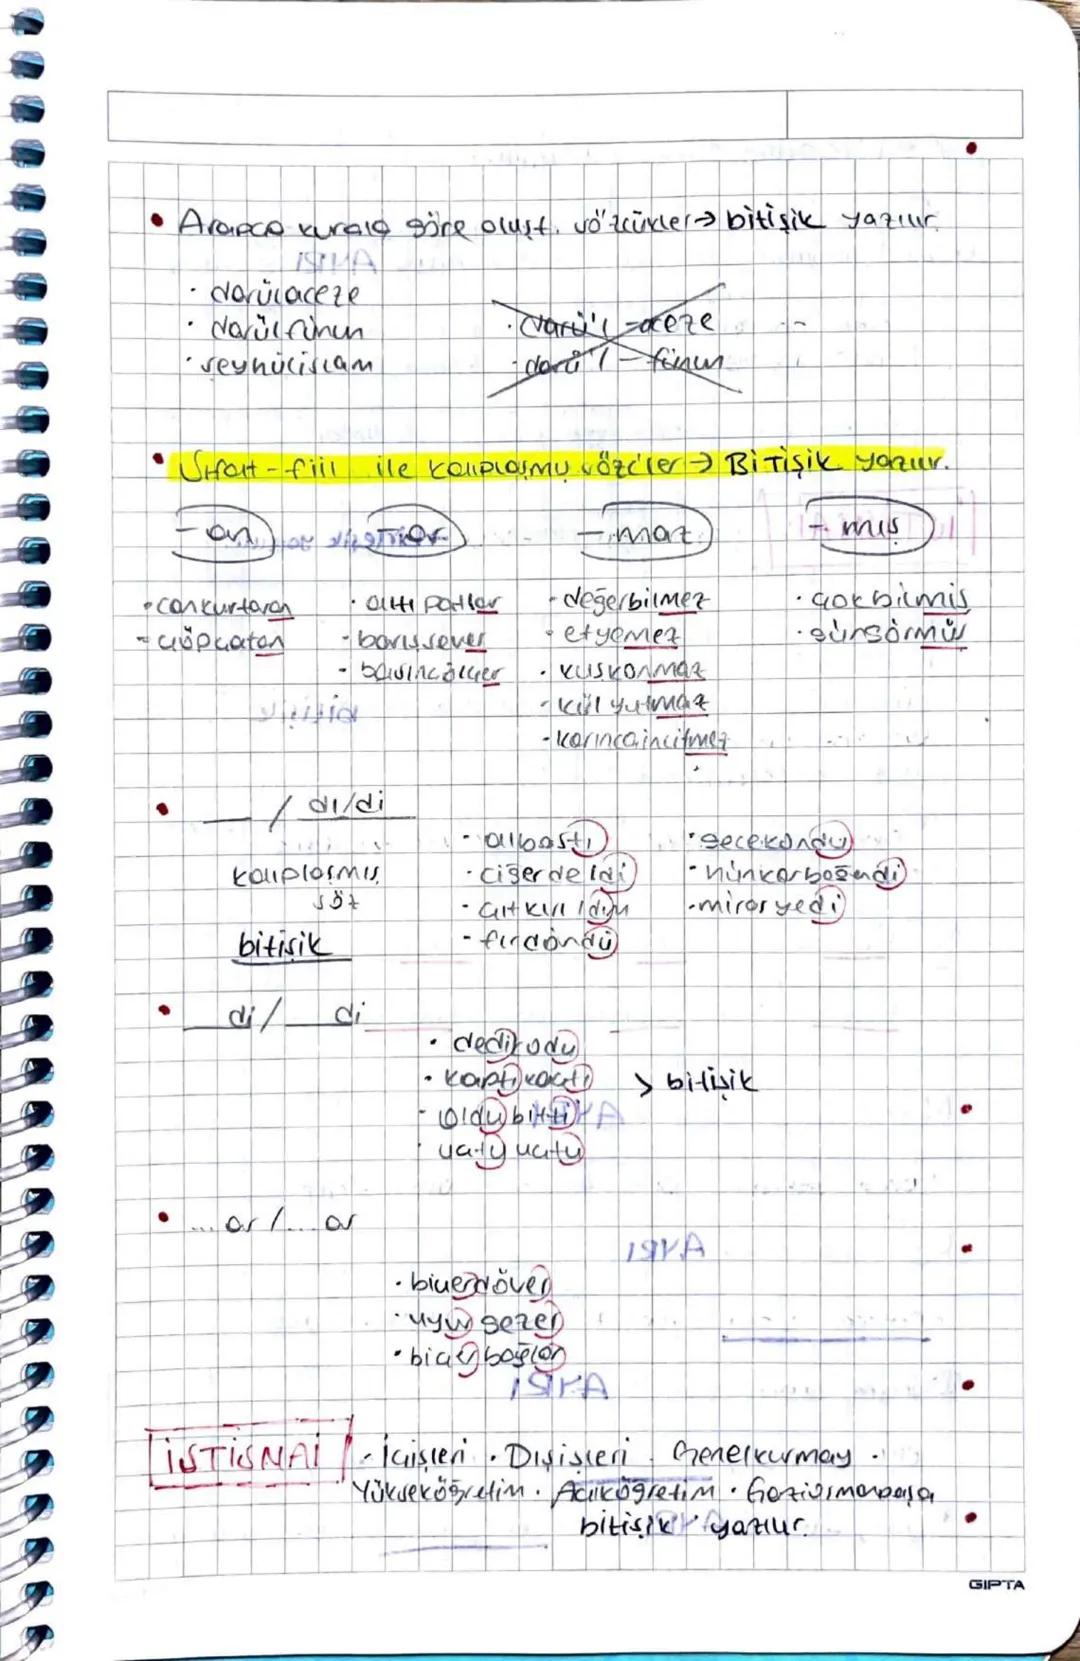 • Arapça kurala göre oluşt. sözcükler → bitişik yazılır.
· darülaceze
· darülfünun
· şeyhülislam
· darü'l-aceze
· darü'l-fünun
• Sıfat-fiil ile kalıplaşmış sözc'ler → BİTİŞİK yazılır.
-an -ar -maz -mış
· cankurtaran · altıpatlar · değerbilmez · çokbilmiş
- çöpçatan - barışsever · etyemez · güngörmüş
- basınçölçer · kuşkonmaz
- külyutmaz
- karıncaincitmez
• __ / dı/di
- albastı · gecekondu
kalıplaşmış · ciğerdeldi - hünkarbeğendi
söz - çıtkırıldım - mirasyedi
bitişik - fırdöndü
• __di/__di
· dedikodu
· kaptıkaçtı > bitişik
- oldubitti
· uçtuuçtu
• ... ar /... ar
· biçerdöver
· uyurgezer
· biçerbağlar
İSTİSNAİ · İçişleri · Dışişleri · Genelkurmay ·
Yükseköğretim · Açıköğretim · Gaziosmanpaşa
bitişik yazılır.
GIPTA